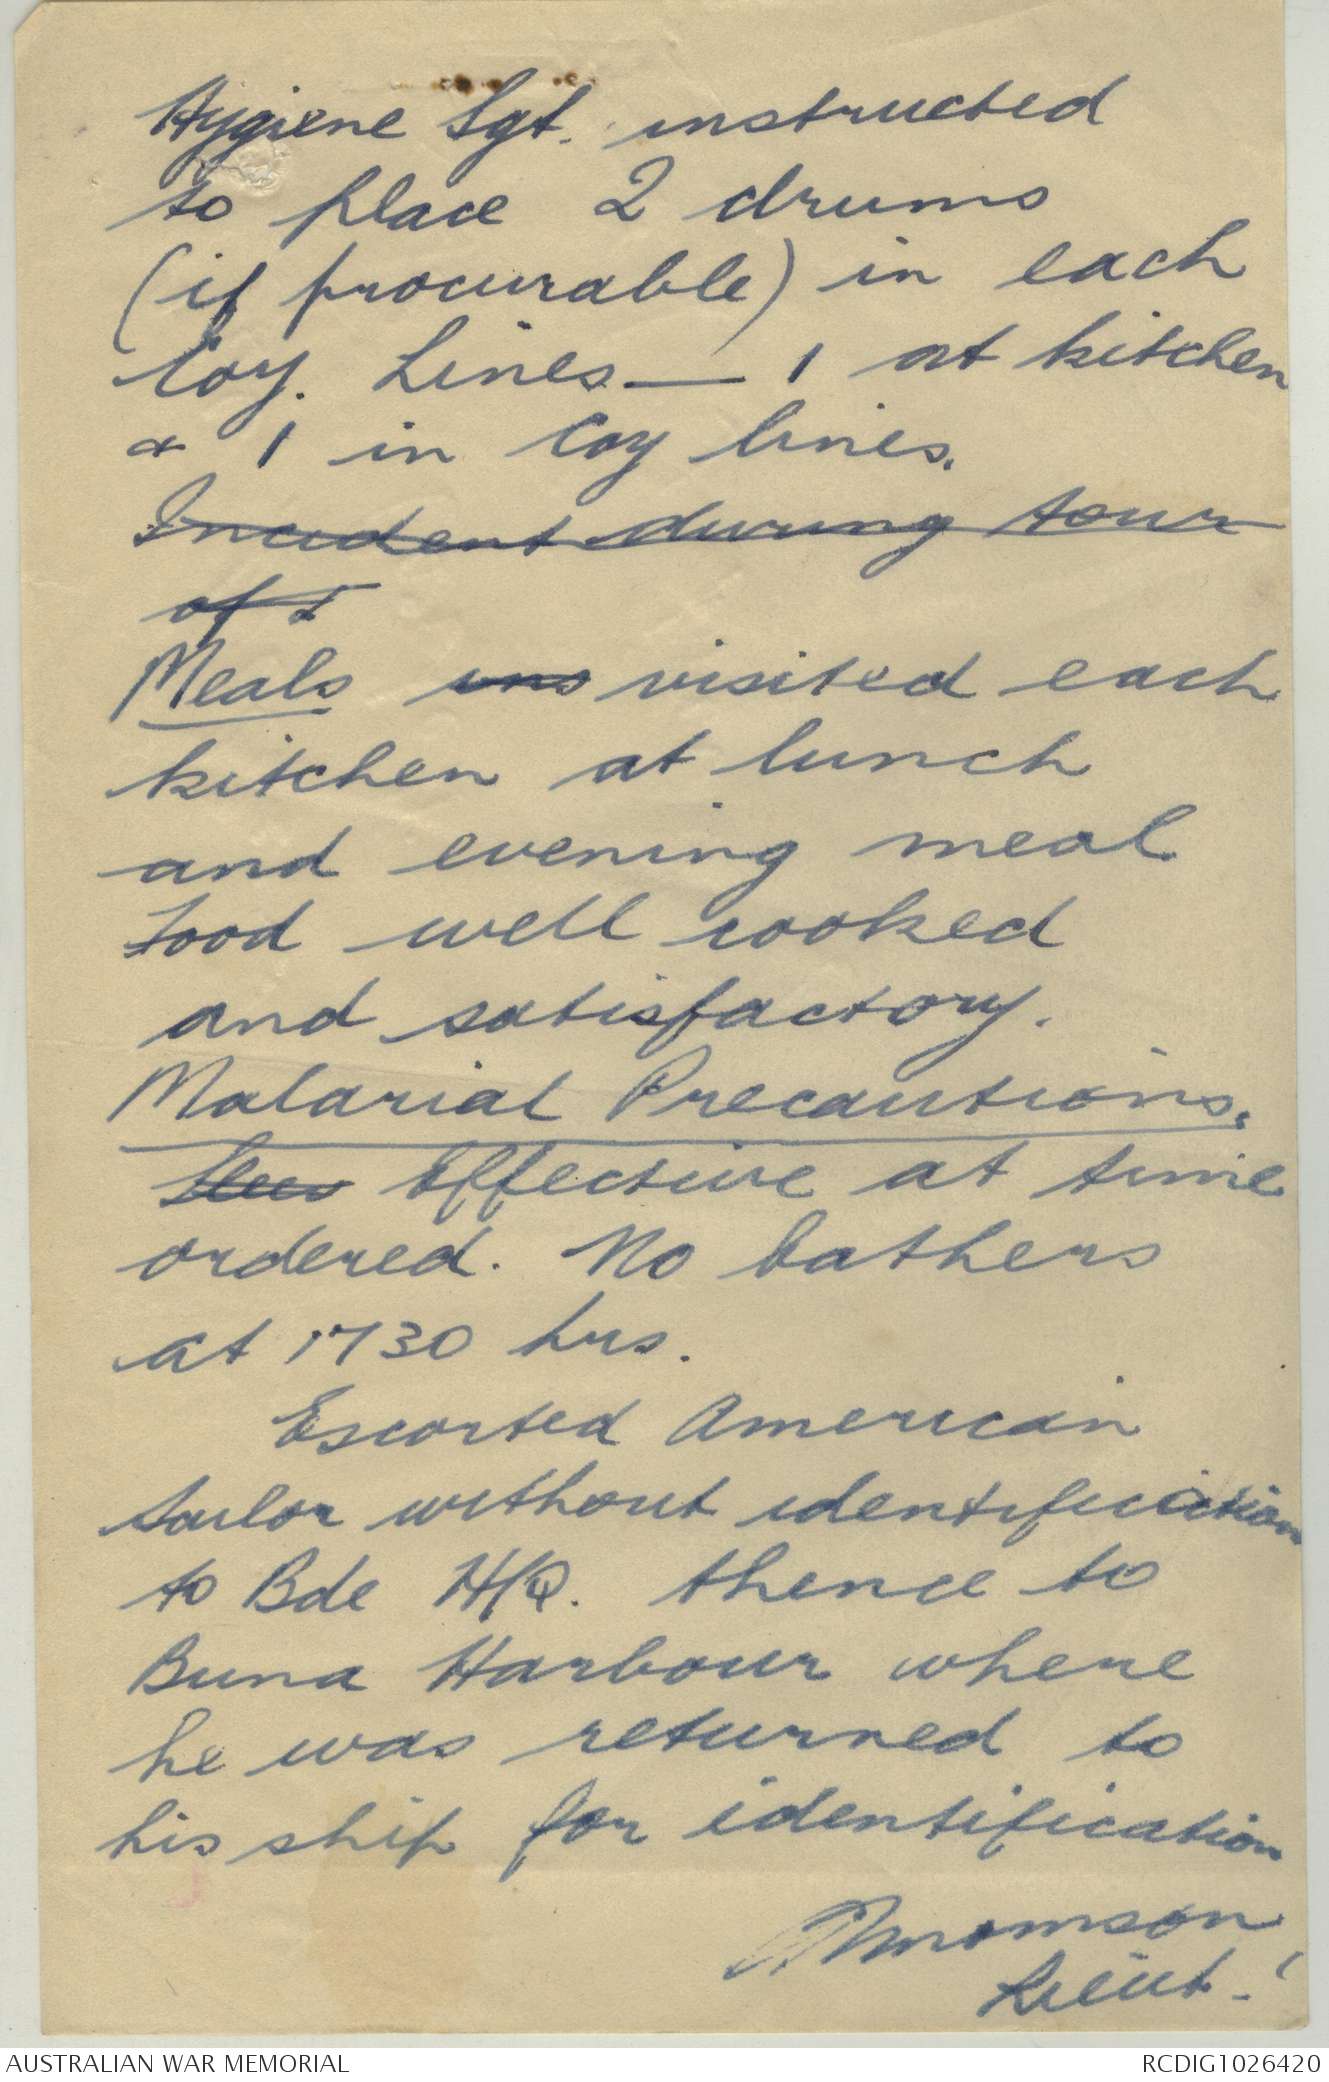 Hygiene Sgt. instructed
to place 2 drums
(if procurable) in each
Coy. Lines — 1 at kitchen
& 1 in Coy lines.
Incident during tour
of I
Meals vis visited each
kitchen at lunch
and evening meal
Food well cooked
and satisfactory.
Malarial Precautions.
Effective at time
ordered. No bathers
at 1730 hrs.
Escorted American
sailor without identification
to Bde H/Q. thence to
Buna Harbour where
he was returned to
his ship for identification
Thomson
Lieut.
AUSTRALIAN WAR MEMORIAL RCDIG1026420